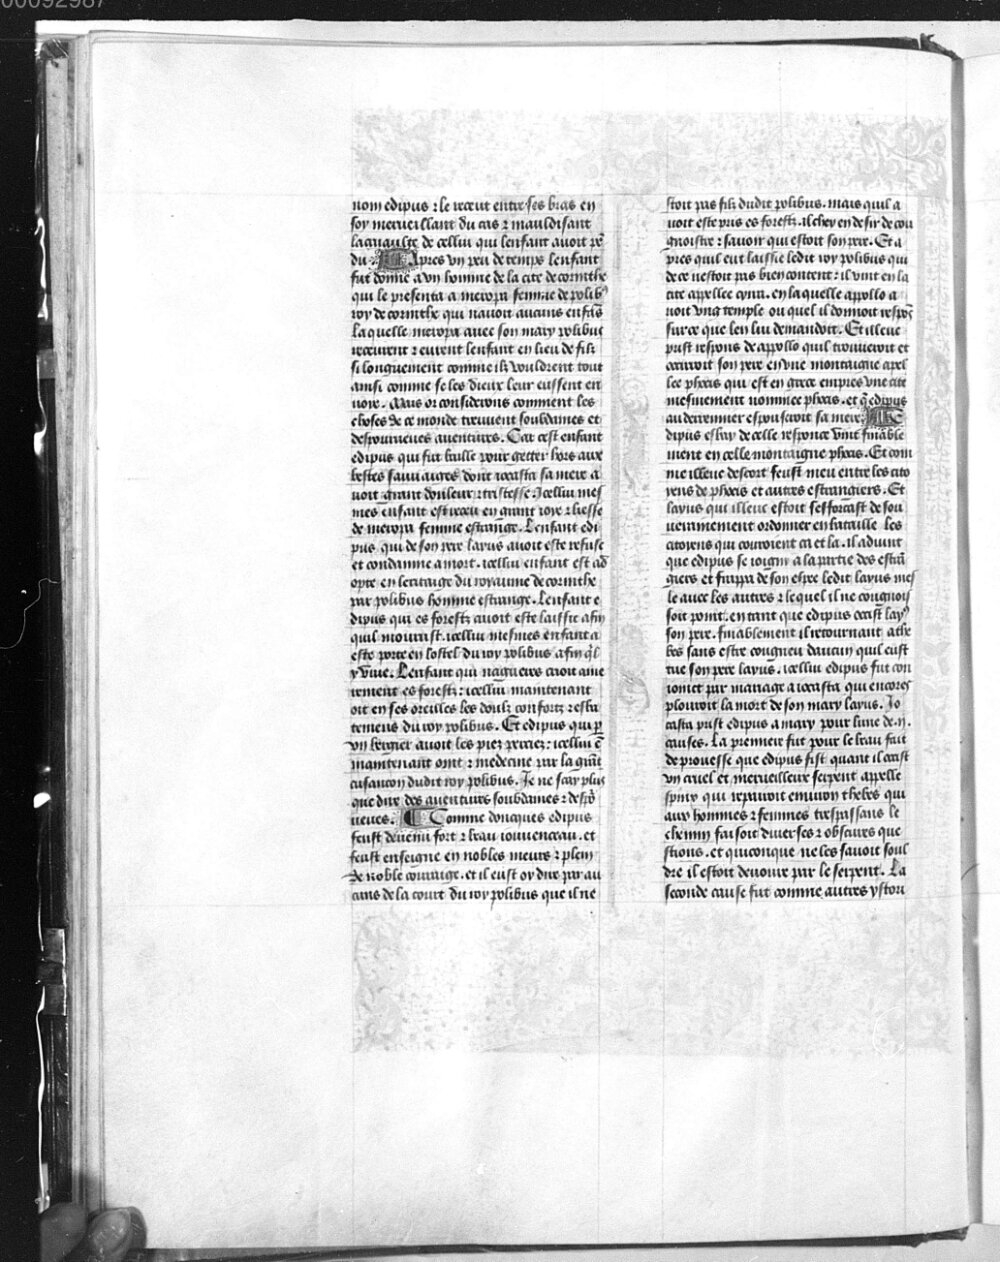 00092987
nom edipus ⁊ le receut entre ses bras en
soy merueillant du cas ⁊ mauldisant
la cruaulte de cellui qui lenfant auoit pē
du. Apres vn peu de temps lenfant
fut donne a vn homme de la cite de corinthe
qui le presenta a meropa femme de polibꝰ
roy de corinthe qui nauoit aucuns enfās
laquelle meropa auec son mary polibus
receurent ⁊ eurent lenfant en lieu de filz
si longuement comme ilz vouldrent tout
ainsi comme se les dieux leur eussent en
uoye. Mais or considerons comment les
choses de ce monde treuuent soubdaines et
despourueues auentures. Car cest enfant
edipus qui fut baille pour getter hors aux
bestes sauuaiges dont iocasta sa mere a
uoit grant douleur ⁊ tristesse. Icellui mes
mes enfant est receu en grant ioye ⁊ liesse
de meropa femme estrange. Lenfant edi
pus qui de son pere layus auoit este refuse
et condamne a mort. icellui enfant est ad
opte en leritaige du royaume de corinthe
par polibus homme estrange. Lenfant e
dipus qui es forestz auoit este laissie afin
quil mourust. icellui mesmes enfant a
este porte en lostel du roy polibus afin q̄l
y viue. Lenfant qui nagueres crioit ame
rement es forestz: icellui maintenant
oit en ses oreilles les doulz confortz ⁊ esba
temens du roy polibus. Et edipus qui p̱
vn bergier auoit les piez percez: icellui ē
maintenant oint ⁊ medecine par la grāt
cusancon dudit roy polibus. Je ne scay plus
que dire des auentures soubdaines ⁊ despō
ueues. Comme doncques edipus
feust deuenu fort ⁊ beau iouuenceau. et
feust enseigne en nobles meurs ⁊ plein
de noble couraige. et il eust oy dire par au
cuns de la court du roy polibus que il ne
stoit pas filz dudit polibus. mais quil a
uoit este pris es forestz. il chey en desir de cou
gnoistre ⁊ sauoir qui estoit son pere. Et a
pres quil eut laissie ledit roy polibus qui
de ce nestoit pas bien content: il vint en la
cite appellee cyrra. en laquelle appollo a
uoit vng temple ou quel il donnoit respōs
sur ce que len lui demandoit. Et illeuc
prist respons de appollo quil trouueroit et
occiroit son pere en vne montaigne apel
lee phocis qui est en grece empres vne cite
mesmement nommee phocis. et q̄ edipus
au derrenier espouseroit sa mere. E
dipus esbay de celle responce vint finable
ment en celle montaigne phocis. Et com
me illeuc descort feust meu entre les cito
yens de phocis et autres estrangiers. Et
layus qui illeuc estoit sefforcast de sou
uerainement ordonner en bataille les
citoyens qui couroient ca et la. il aduint
que edipus se ioigny a la partie des estrā
giers et frappa de son espee ledit layus mes
le auec les autres ⁊ lequel il ne congnois
soit point. en tant que edipus occist layꝰ
son pere. finablement il retournant a the
bes sans estre congneu daucun quil eust
tue son pere layus. icellui edipus fut con
ioinct par mariage a iocasta qui encores
plouroit la mort de son mary layus. Jo
casta prist edipus a mary pour lune de .ii.
causes. La premiere fut pour le beau fait
de prouesse que edipus fist quant il occist
vn cruel et merueilleux serpent appelle
spinx qui repairoit enuiron thebes qui
aux hommes ⁊ femmes trespassans le
chemin faisoit diuerses ⁊ obscures que
stions. et quiconque ne les sauoit soul
dre il estoit deuoure par le serpent. La
seconde cause fut comme autres ystori